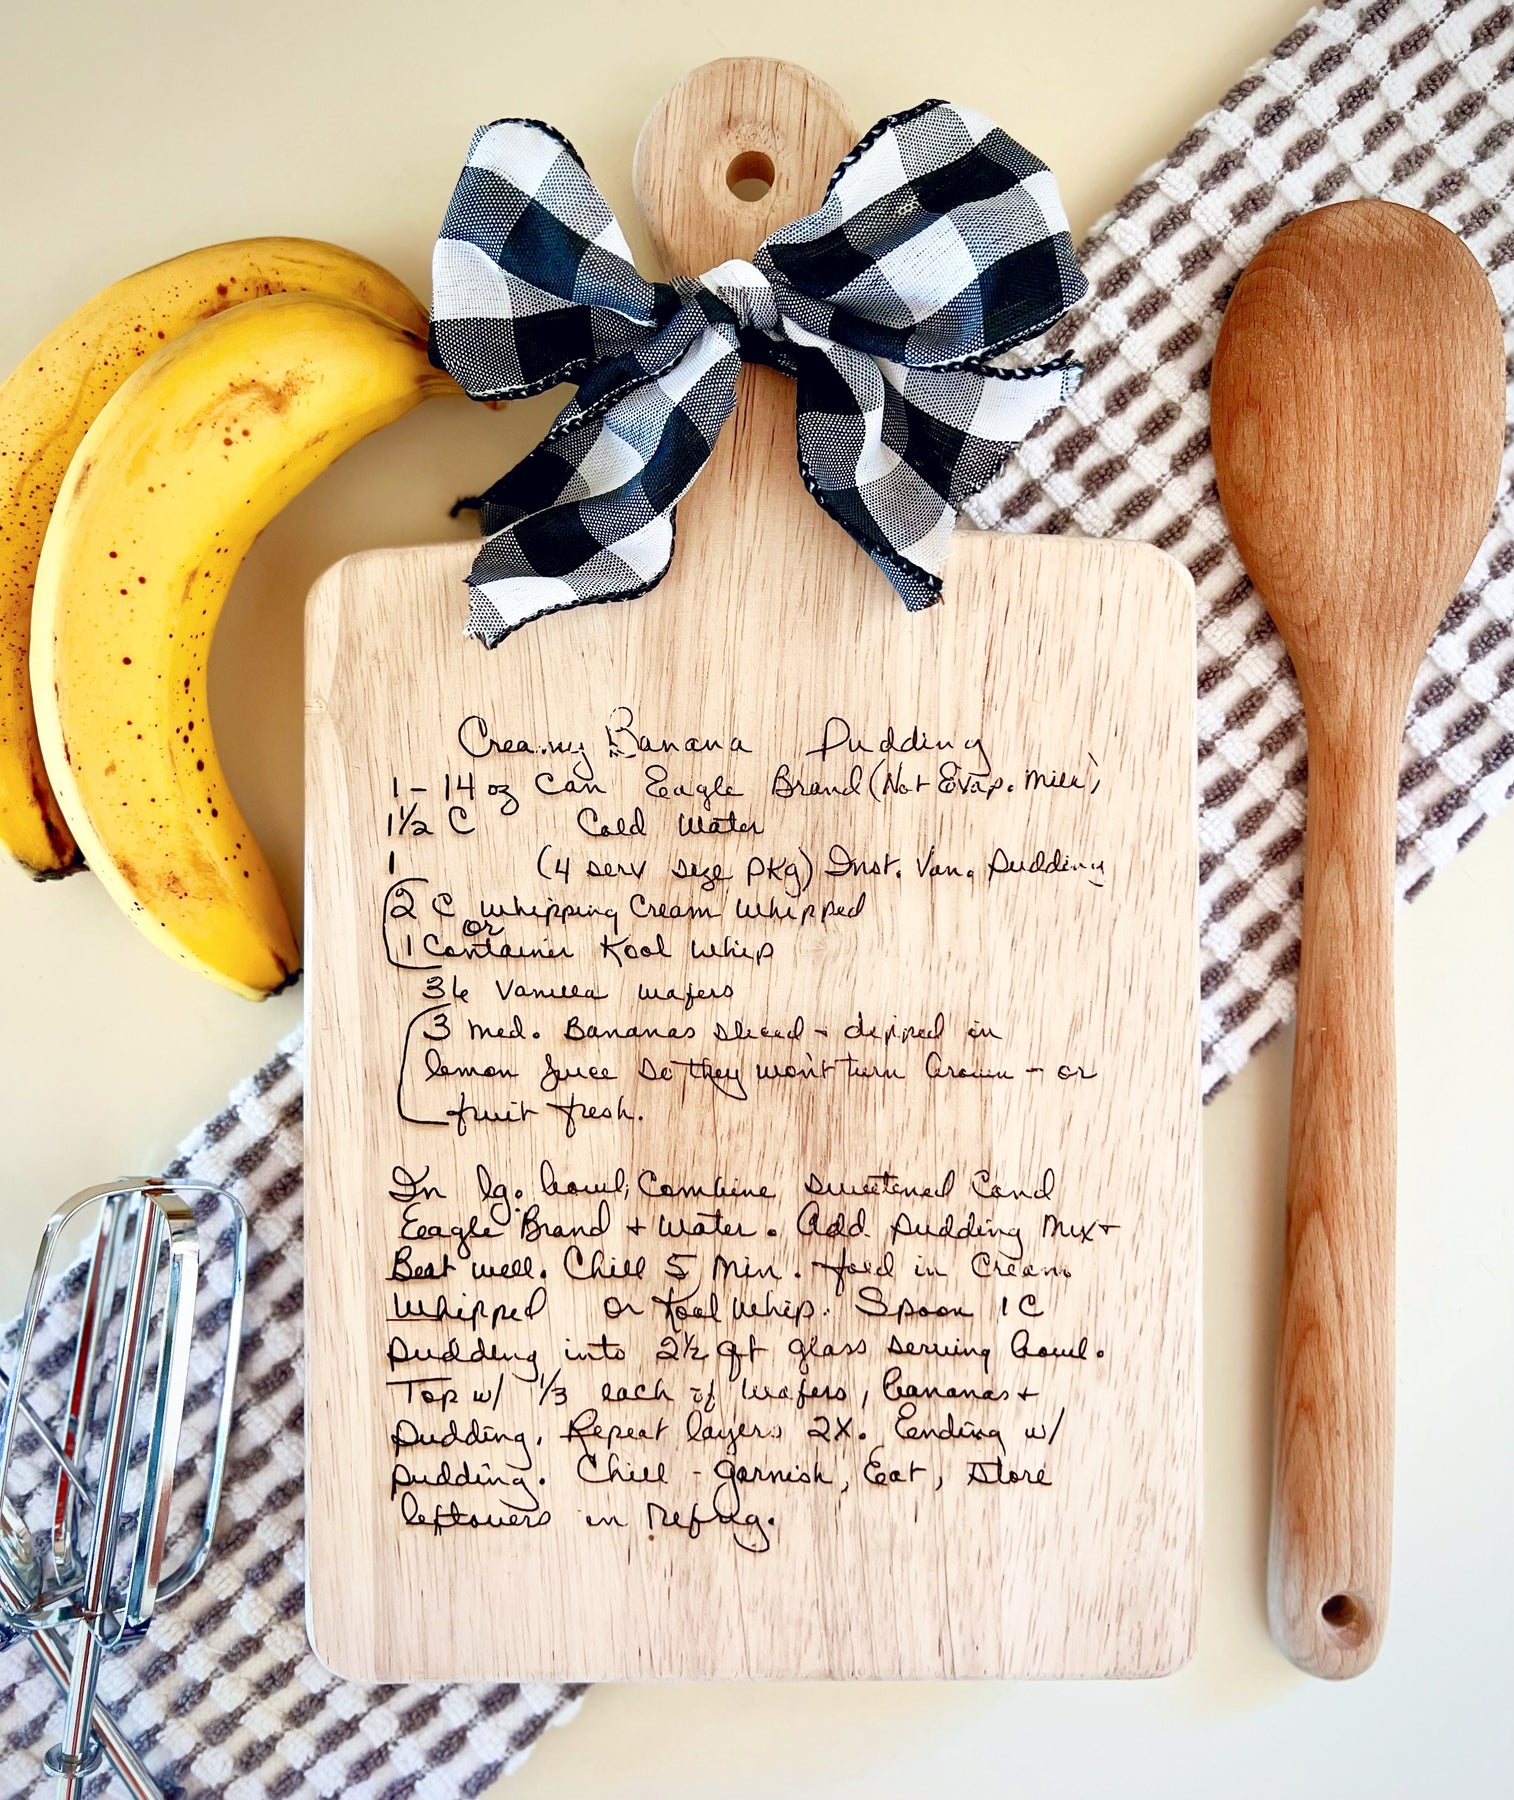 Creamy Banana Pudding
1 - 14 oz Can Eagle Brand (Not Evap. Milk)
1½ C Cold Water
1 (4 serv size pkg) Inst. Van. Pudding
2 C Whipping Cream Whipped
or
1 Container Kool Whip
36 Vanilla wafers
3 med. Bananas sliced - dipped in
lemon juice so they won't turn brown - or
fruit fresh.
In lg. bowl, Combine sweetened Cond
Eagle Brand + Water. Add pudding Mix +
Beat well. Chill 5 Min. Fold in Cream
Whipped or Kool Whip. Spoon 1 C
pudding into 2½ qt glass serving bowl.
Top w/ ⅓ each of wafers, bananas +
pudding. Repeat layers 2X. Ending w/
pudding. Chill - garnish, Eat, Store
leftovers in Refrig.